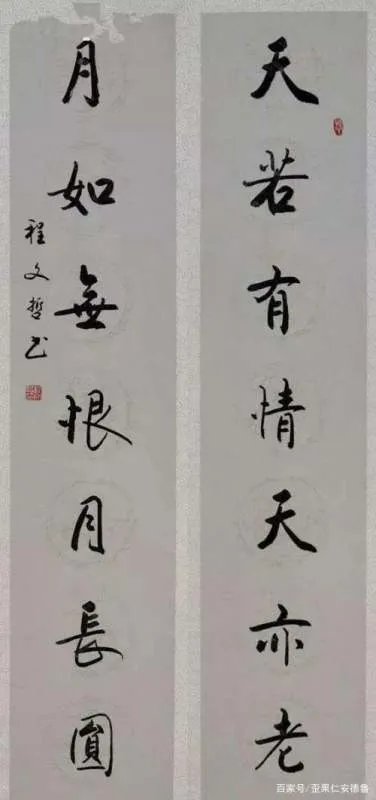 天若有情天亦老
月如無恨月長圓
程文哲书
百家号/歪果仁安德鲁